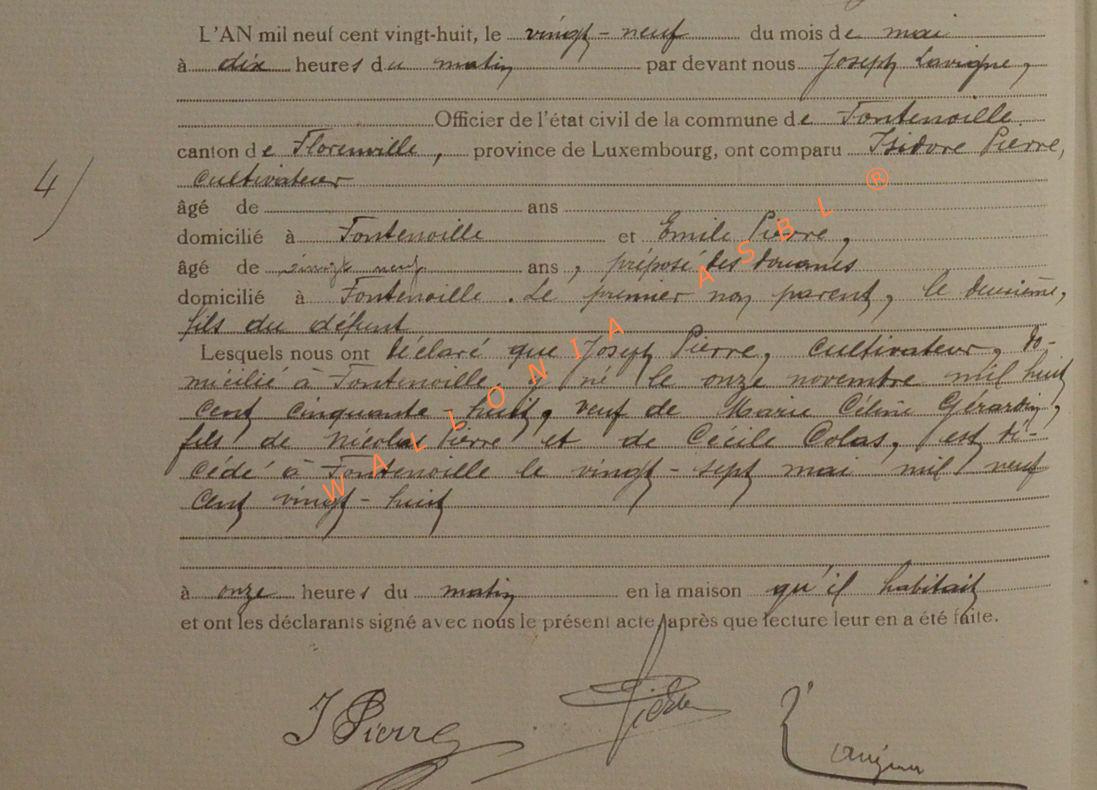 L'AN mil neuf cent vingt-huit, le vingt-neuf du mois de mai
à dix heures du matin par devant nous Joseph Lavigne,
Officier de l'état civil de la commune de Fontenoille
canton de Florenville, province de Luxembourg, ont comparu Isidore Pierre,
cultivateur
âgé de ans
domicilié à Fontenoille et Emile Pierre,
âgé de vingt neuf ans, préposé des douanes
domicilié à Fontenoille. Le premier non parent, le deuxième,
fils du défunt
Lesquels nous ont déclaré que Joseph Pierre, cultivateur, do-
micilié à Fontenoille, y né le onze novembre mil huit
cent cinquante-huit, veuf de Marie Céline Gérardin,
fils de Nicolas Pierre et de Cécile Colas, est dé-
cédé à Fontenoille le vingt-sept mai mil neuf
cent vingt-huit
à onze heures du matin en la maison qu'il habitait
et ont les déclarants signé avec nous le présent acte, après que lecture leur en a été faite.
4)
J Pierre
WALLONIA ASBL ®